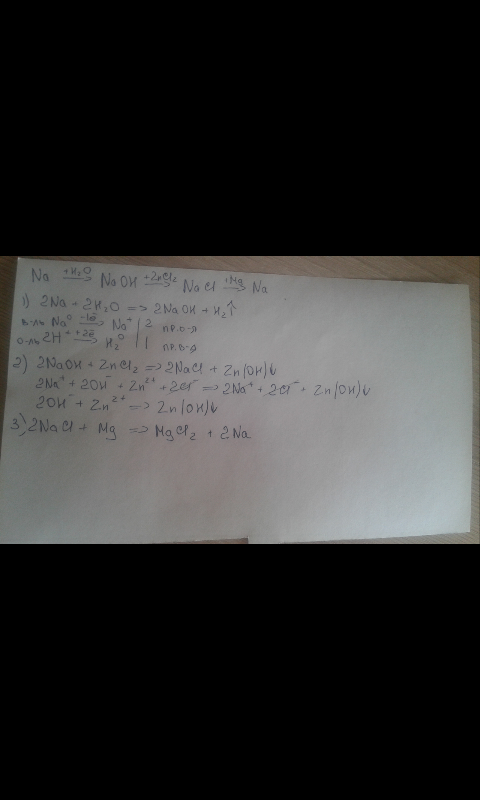 Na +H₂O→ NaOH +ZnCl₂→ NaCl +Mg→ Na
1) 2Na + 2H₂O => 2NaOH + H₂↑
в-ль Na⁰ -1ē→ Na⁺ | 2 пр.о-я
о-ль 2H⁺ +2ē→ H₂⁰ | 1 пр.в-я
2) 2NaOH + ZnCl₂ => 2NaCl + Zn(OH)↓
2Na⁺ + 2OH⁻ + Zn²⁺ + 2Cl⁻ => 2Na⁺ + 2Cl⁻ + Zn(OH)↓
2OH⁻ + Zn²⁺ => Zn(OH)↓
3) 2NaCl + Mg => MgCl₂ + 2Na